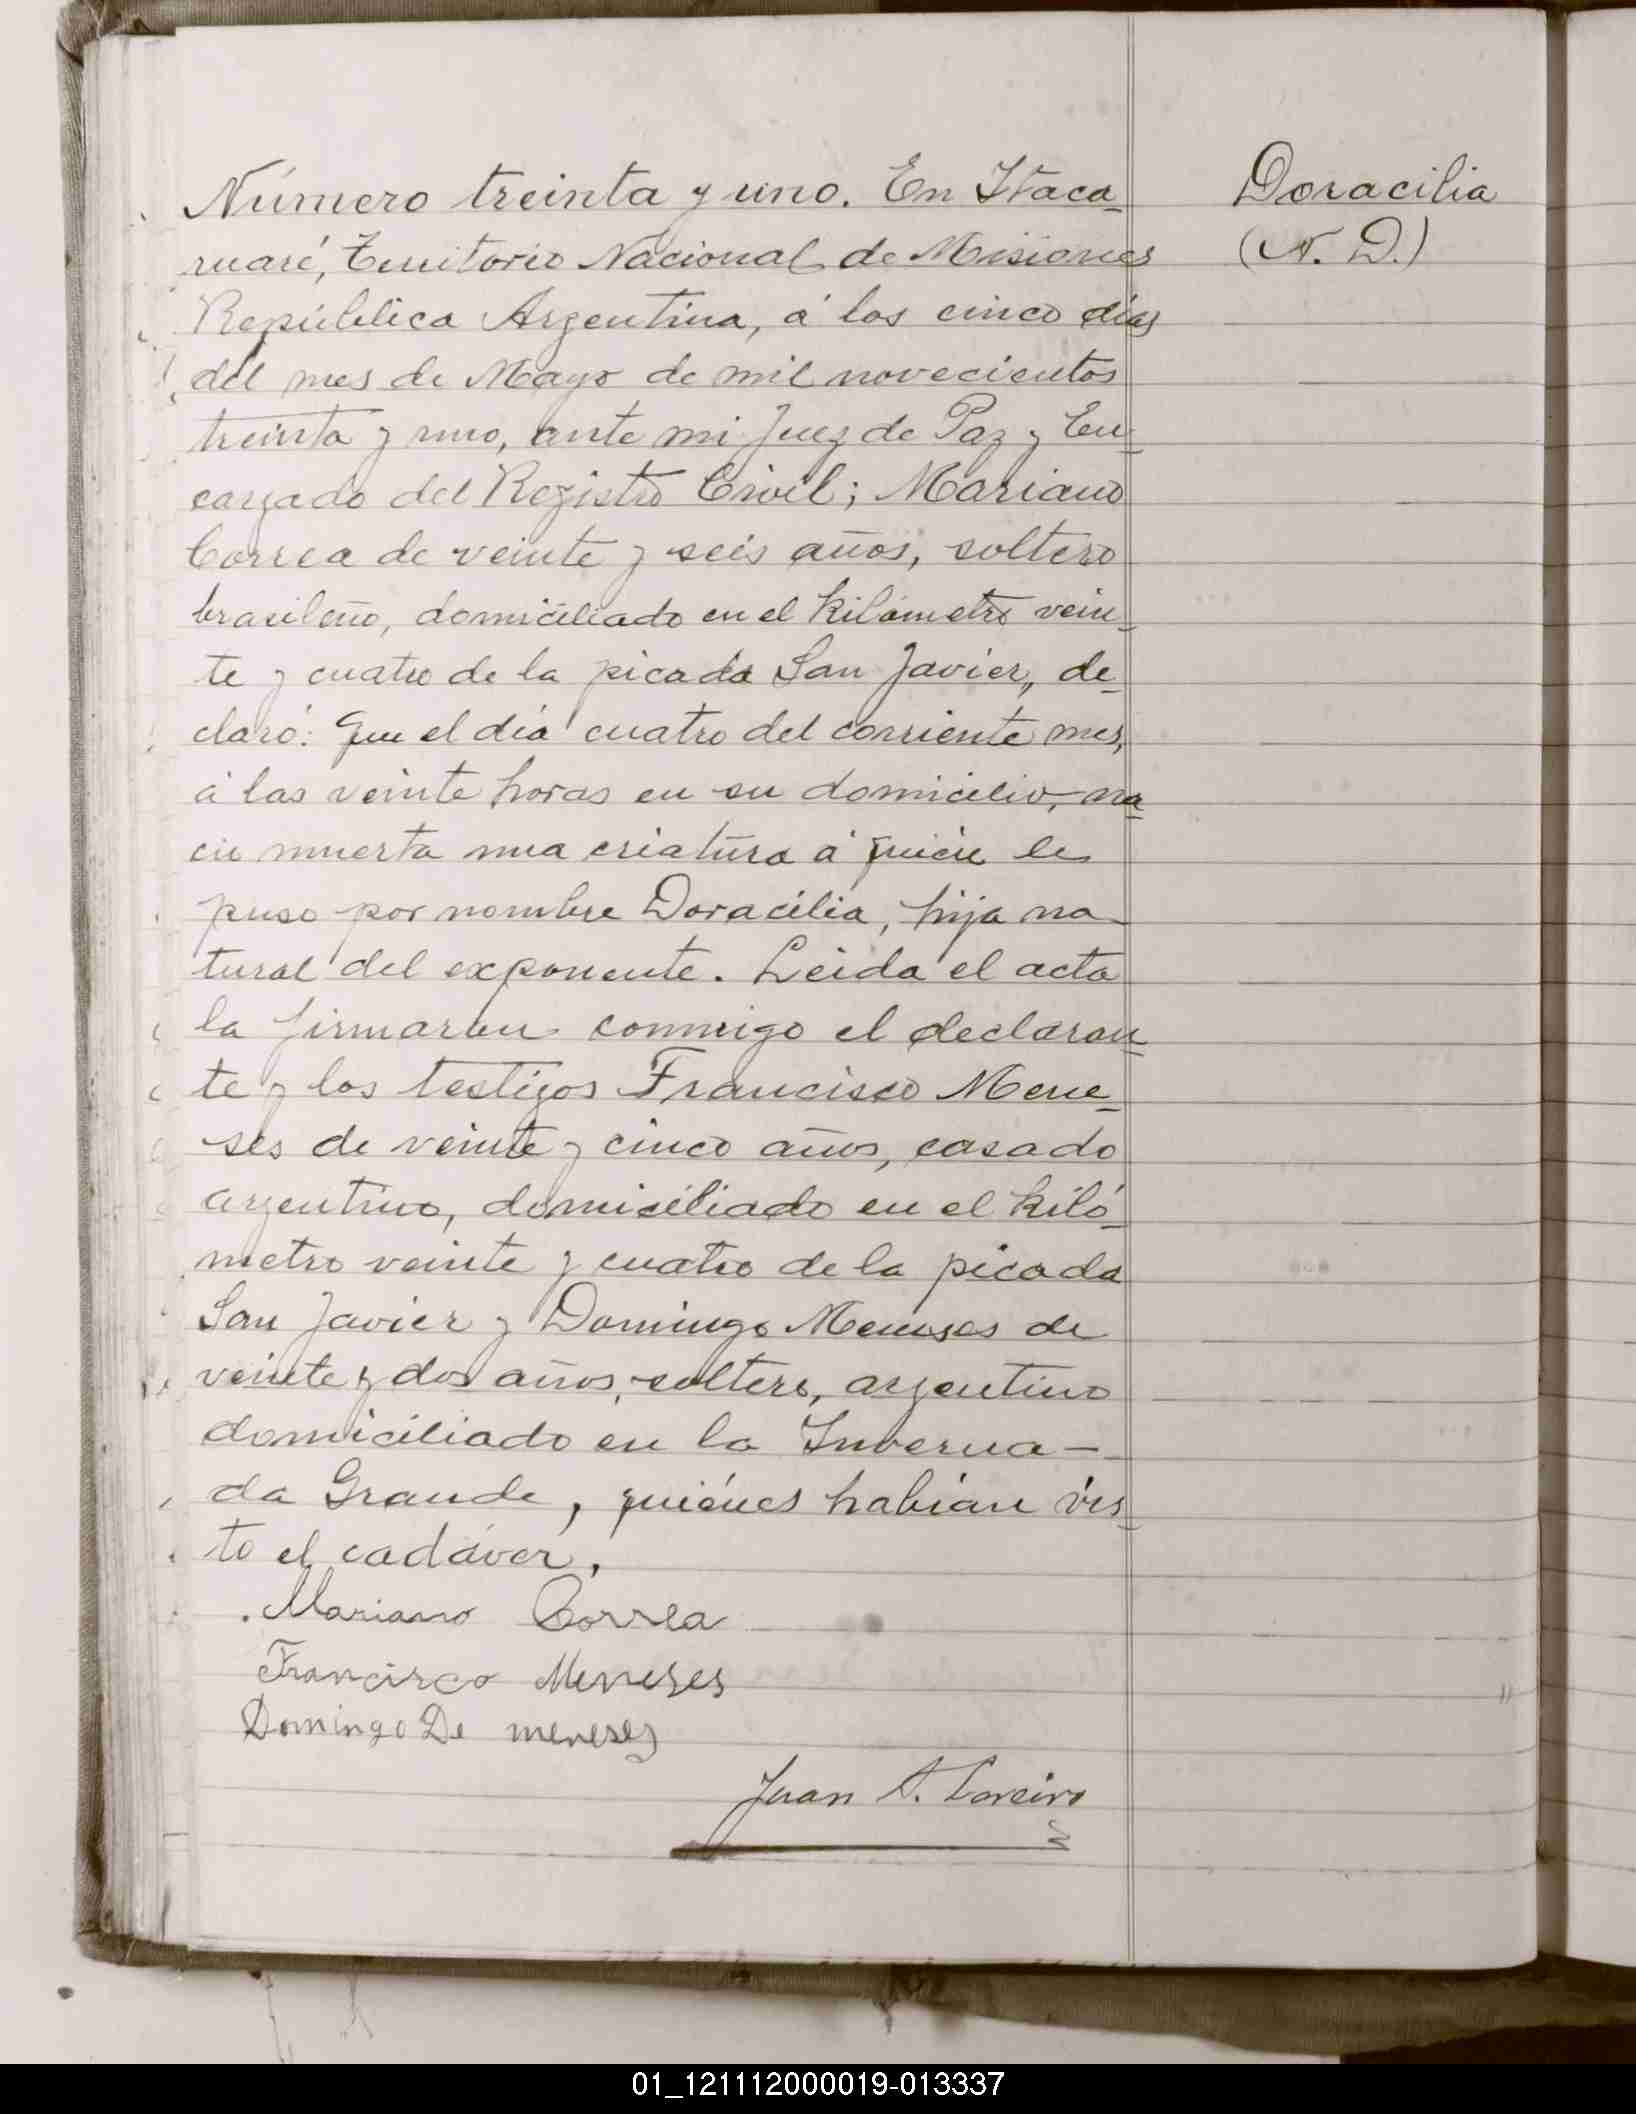 Número treinta y uno. En Itaca-
ruaré, Territorio Nacional de Misiones
República Argentina, á los cinco días
del mes de Mayo de mil novecientos
treinta y uno, ante mi Juez de Paz y En-
cargado del Registro Civil; Mariano
Correa de veinte y seis años, soltero
brasileño, domiciliado en el kilómetro vein-
te y cuatro de la picada San Javier, de-
claró: Que el día cuatro del corriente mes,
á las veinte horas en su domicilio, na-
cio muerta una criatura á quien le
puso por nombre Doracilia, hija na-
tural del exponente. Leida el acta
la firmaron conmigo el declaran-
te y los testigos Francisco Mene-
ses de veinte y cinco años, casado
argentino, domiciliado en el kiló-
metro veinte y cuatro de la picada
San Javier y Domingo Meneses de
veinte y dos años, soltero, argentino
domiciliado en la Inverna-
da Grande, quiénes habían vis-
to el cadáver.
Mariano Correa
Francisco Meneses
Domingo De meneses
Juan A. Loreiro
Doracilia
(N. D.)
01_121112000019-013337